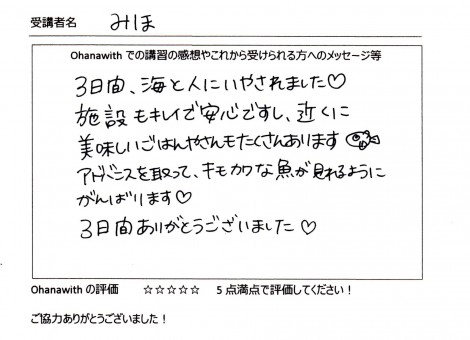 受講者名 みほ
Ohanawith での講習の感想やこれから受けられる方へのメッセージ等
3日間、海と人にいやされました♡
施設もキレイで安心ですし、近くに
美味しいごはんやさんもたくさんあります
アドバンスを取って、キモカワな魚が見れるように
がんばります♡
3日間ありがとうございました♡
Ohanawith の評価 ☆☆☆☆☆ 5点満点で評価してください！
ご協力ありがとうございました！